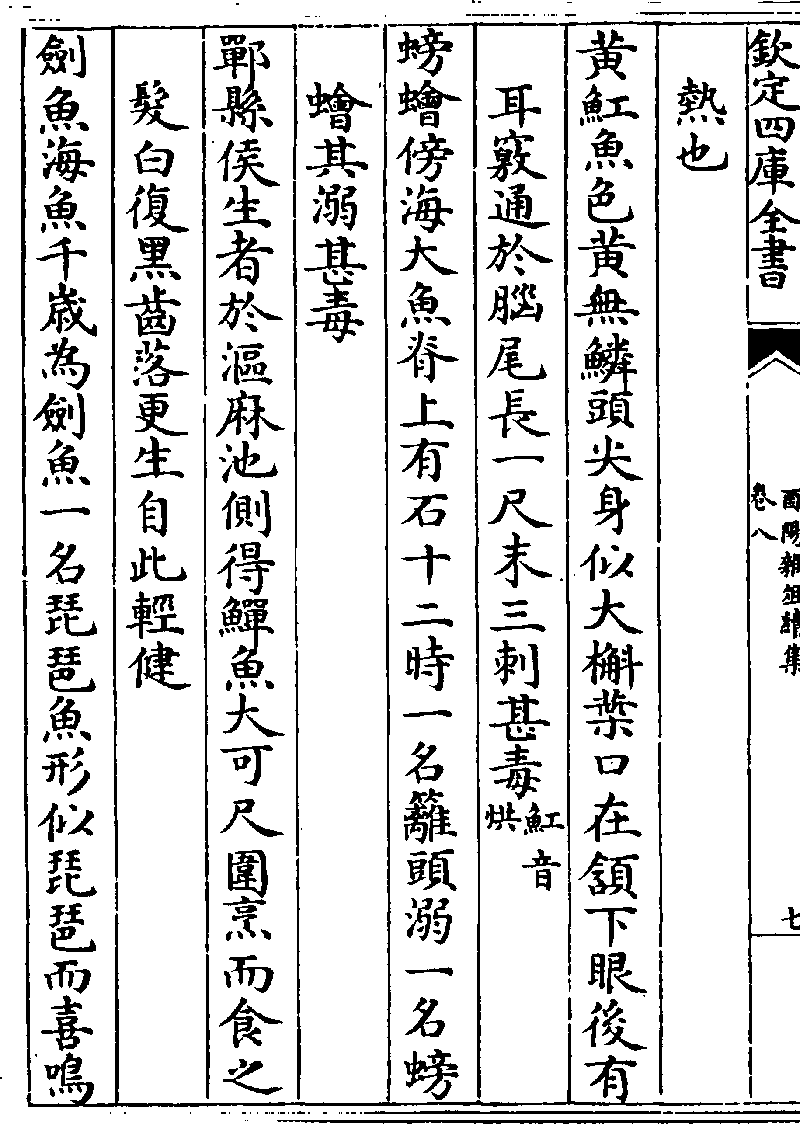 欽定四庫全書
酉陽雜俎續集
卷八
七
熱也
黃魟魚色黃無鱗頭尖身似大槲葉口在頷下眼後有
耳竅通於腦尾長一尺末三刺甚毒魟音烘
螃䲅傍海大魚脊上有石十二時一名籬頭溺一名螃
䲅其溺甚毒
鄲縣侯生者於漚麻池側得鱓魚大可尺圍烹而食之
髮白復黑齒落更生自此輕健
劍魚海魚千歲為劍魚一名琵琶魚形似琵琶而喜鳴